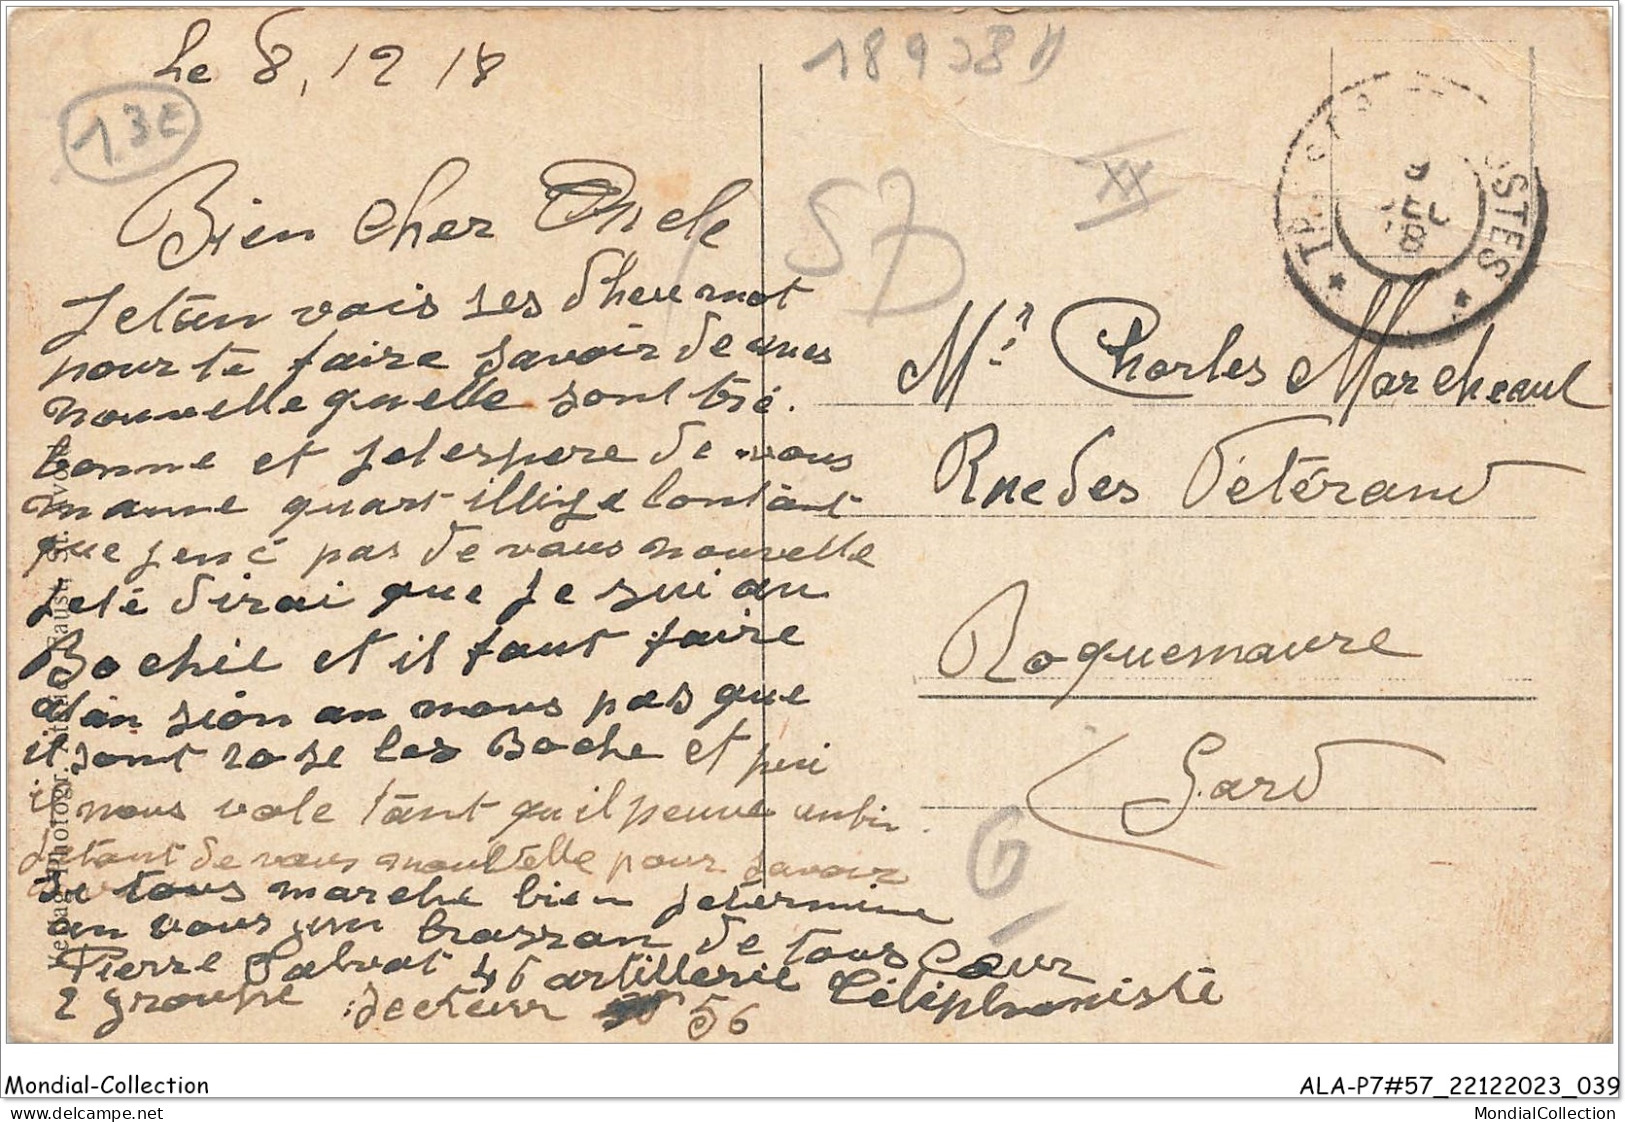 le 8, 12 18
18938
13E
57
XX
TRESOR ET POSTES
9
DEC
18
Bien cher Oncle
Je tan vais ses d'heu mot
pour te faire savoir de mes
nouvelle quelle sont tré.
bonne et jelespere de vous
manne quart illige lontant
que jen é pas de vous nouvelle
je té dirai que je sui au
Bochie et il faut faire
atan sion an nous pas que
il sont rose les Boche et pui
i nous vole tant qu il peuve
detant de vous nouvelle pour savoir
si tous marche bien jetermine
an vous brassan de tous Cour
Pierre Salvat 46 artillerie Téléphoniste
2 groupe Secteur 56
Mr. Charles Marcheaul
Rue des Vetérand
Roquemaure
Gard
G
Mondial-Collection
ALA-P7#57_22122023_039
MondialCollection